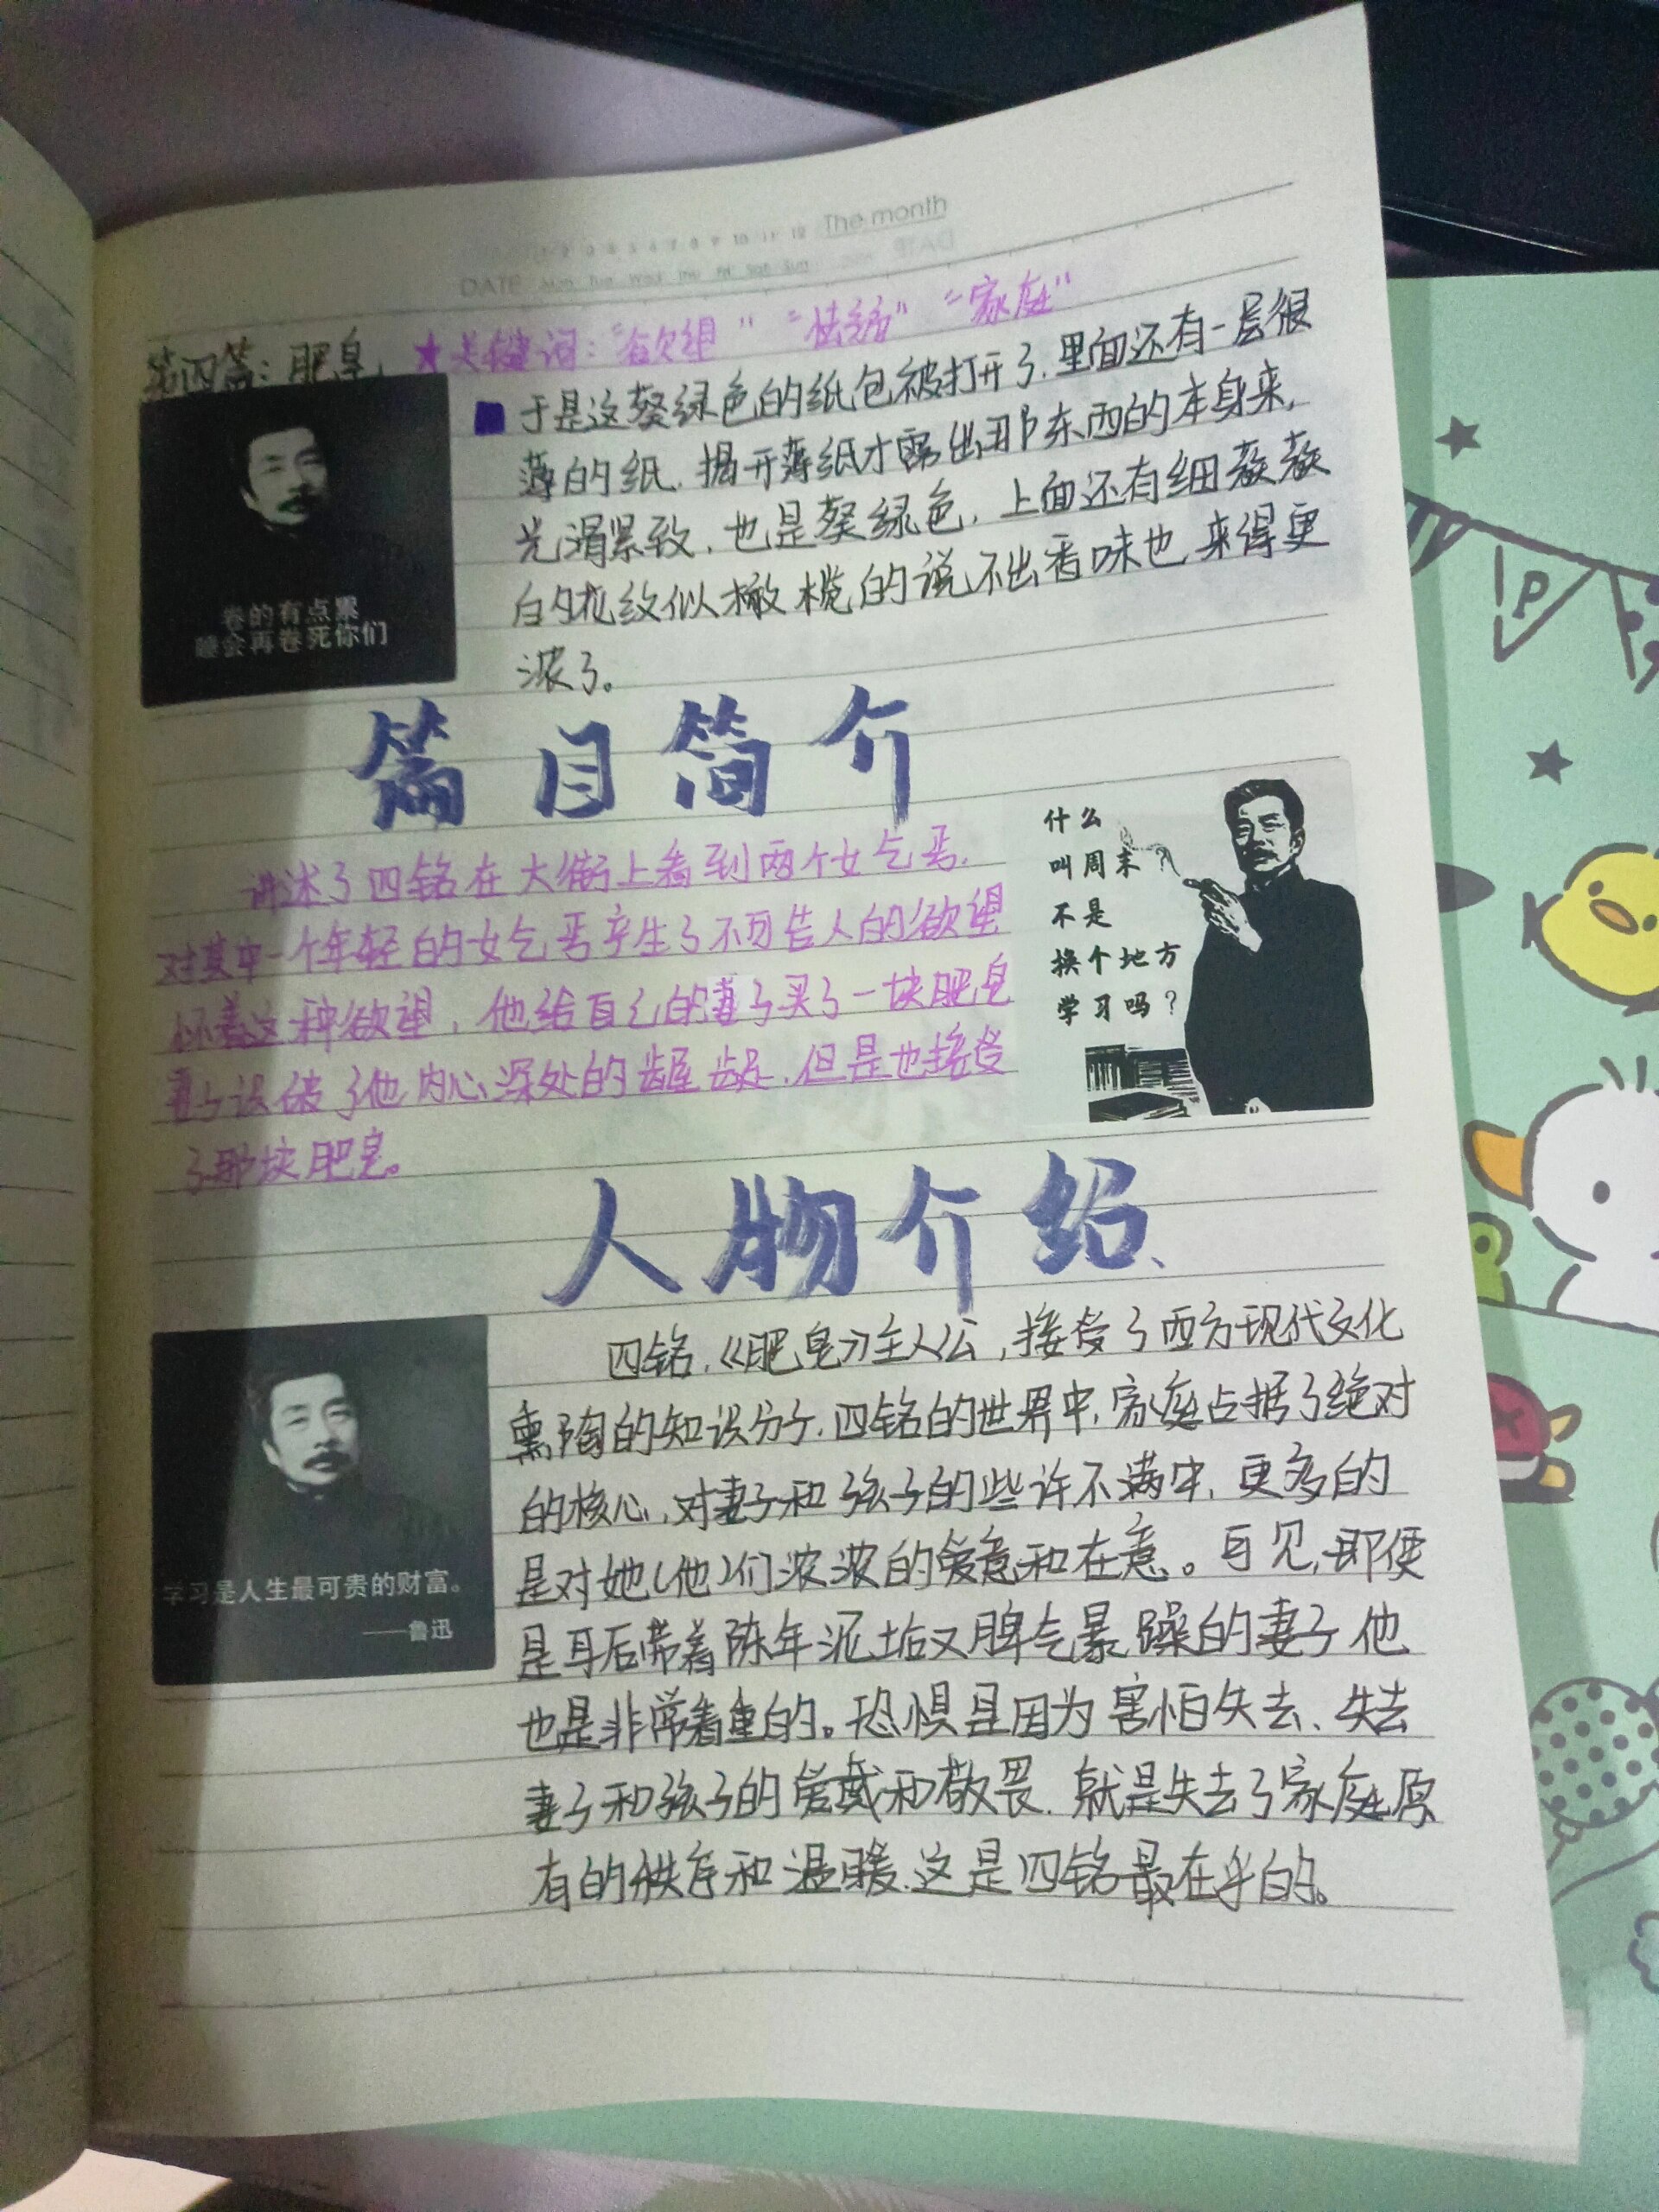 The month
DATE Mon Tue Wed Thu Fri Sat Sun
第四篇：肥皂，★关键词："欲望" "怯弱" "家庭"
于是这葵绿色的纸包被打开了．里面还有一层很
薄的纸．揭开薄纸才露出那东西的本身来，
光滑紧致．也是葵绿色，上面还有细蔌蔌
的花纹似橄榄的说不出香味也来得更
浓了。
卷的有点累
睡会再卷死你们
篇目简介
讲述了四铭在大街上看到两个女乞丐．
对其中一个年轻的女乞丐产生了不可告人的欲望
怀着这种欲望，他给自己的妻子买了一块肥皂
妻子识破了他内心深处的龌龊．但是也接受
了那块肥皂。
什么
叫周末？
不是
换个地方
学习吗？
人物介绍、
四铭．《肥皂》主人公，接受了西方现代文化
熏陶的知识分子．四铭的世界中，家庭占据了绝对
的核心，对妻子和孩子的些许不满中，更多的
是对她（他）们浓浓的爱意和在意。可见，即便
是耳后带着陈年泥垢又脾气暴躁的妻子他
也是非常看重的。恐惧是因为害怕失去、失去
妻子和孩子的爱戴和敬畏．就是失去了家庭原
有的秩序和温暖．这是四铭最在乎的。
学习是人生最可贵的财富。
——鲁迅
P